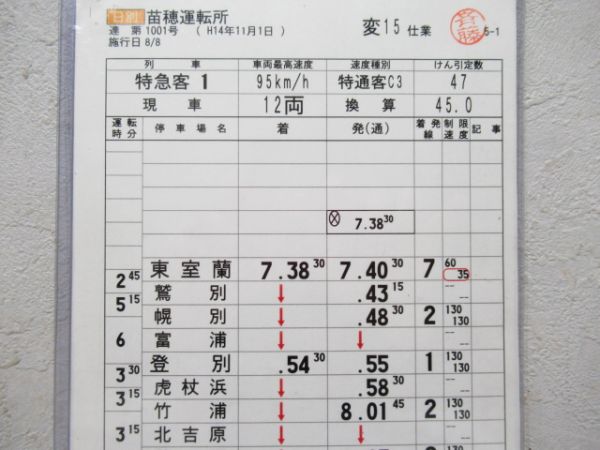 日別 苗穂運転所
達 第1001号 ( H14年11月1日 )
施行日 8/8
変15 仕業
斉藤
5-1
列 車 車両最高速度 速度種別 けん引定数
特急客 1 95km/h 特通客C3 47
現 車 12両 換 算 45.0
運転時分 停車場名 着 発(通) 着発線 制限速度 記事
7.38 30
東室蘭 7.38 30 7.40 30 7 60 35
2 45
鷲別 ↓ .43 15 -- --
5 15
幌別 ↓ .48 30 2 130 130
富浦 ↓ ↓ -- --
6
登別 .54 30 .55 1 130 130
3 30
虎杖浜 ↓ .58 30 -- --
3 15
竹浦 ↓ 8.01 45 2 130 130
北吉原 ↓ ↓ -- --
3 15